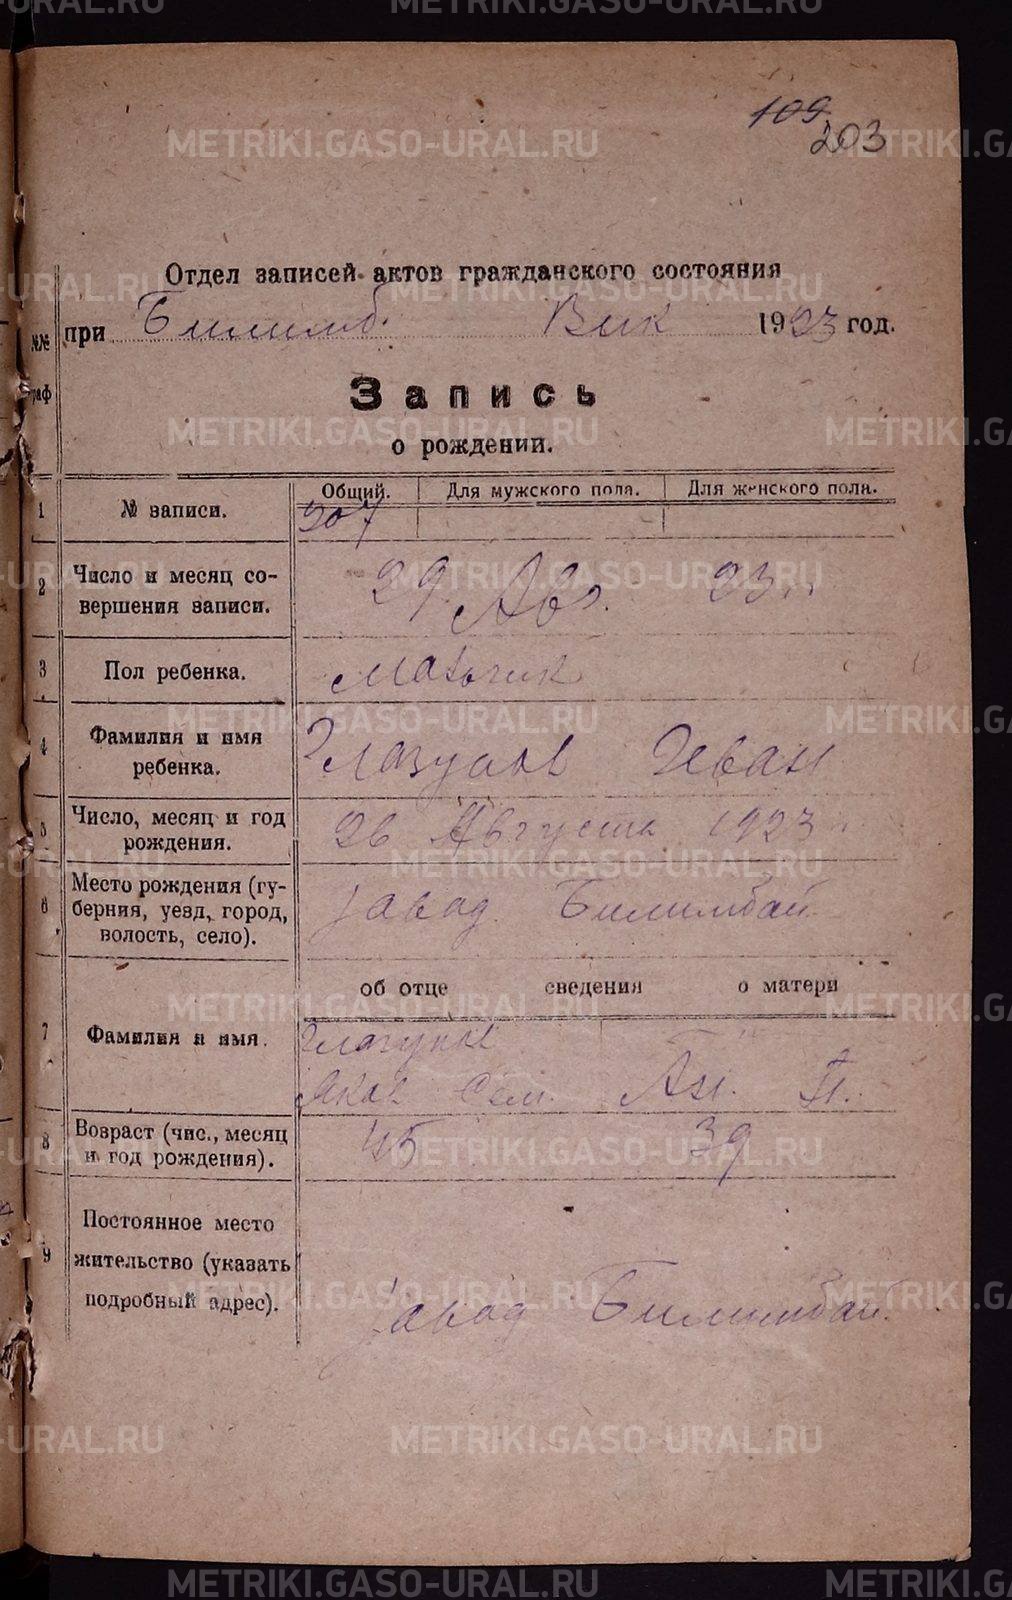 109
203
Отдел записей актов гражданского состояния
при Билимб. Вик 1923 год.
№№
граф
Запись
о рождении.
Общий. Для мужского пола. Для женского пола.
1 № записи. 207
2 Число и месяц со-
вершения записи. 29 Авг. 23 г.
3 Пол ребенка. Мальчик
4 Фамилия и имя
ребенка. Глазунов Иван
5 Число, месяц и год
рождения. 26 Августа 1923 г.
6 Место рождения (гу-
берния, уезд, город,
волость, село). завод Билимбай
об отце сведения о матери
7 Фамилия и имя. Глазунов
Яков Сем. Ан. П.
8 Возраст (чис., месяц
и год рождения). 45 39
9 Постоянное место
жительство (указать
подробный адрес). завод Билимбай.
METRIKI.GASO-URAL.RU